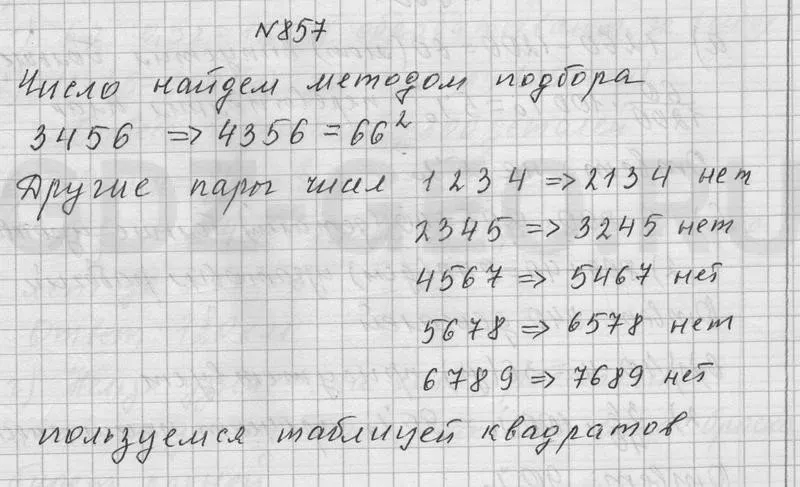 N857
Число найдем методом подбора
3456 => 4356 = 66²
Другие пары чисел 1234 => 2134 нет
2345 => 3245 нет
4567 => 5467 нет
5678 => 6578 нет
6789 => 7689 нет
пользуемся таблицей квадратов